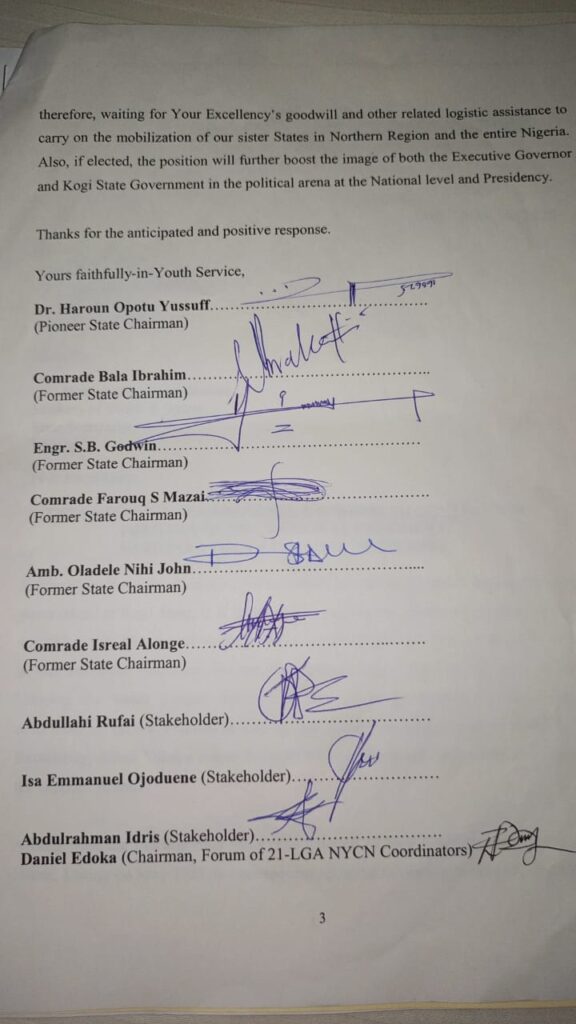 therefore, waiting for Your Excellency's goodwill and other related logistic assistance to
carry on the mobilization of our sister States in Northern Region and the entire Nigeria.
Also, if elected, the position will further boost the image of both the Executive Governor
and Kogi State Government in the political arena at the National level and Presidency.
Thanks for the anticipated and positive response.
Yours faithfully-in-Youth Service,
Dr. Haroun Opotu Yussuff
(Pioneer State Chairman)
Comrade Bala Ibrahim
(Former State Chairman)
Engr. S.B. Godwin
(Former State Chairman)
Comrade Farouq S Mazai
(Former State Chairman)
Amb. Oladele Nihi John
(Former State Chairman)
Comrade Isreal Alonge
(Former State Chairman)
Abdullahi Rufai (Stakeholder)
Isa Emmanuel Ojoduene (Stakeholder)
Abdulrahman Idris (Stakeholder)
Daniel Edoka (Chairman, Forum of 21-LGA NYCN Coordinators)
3